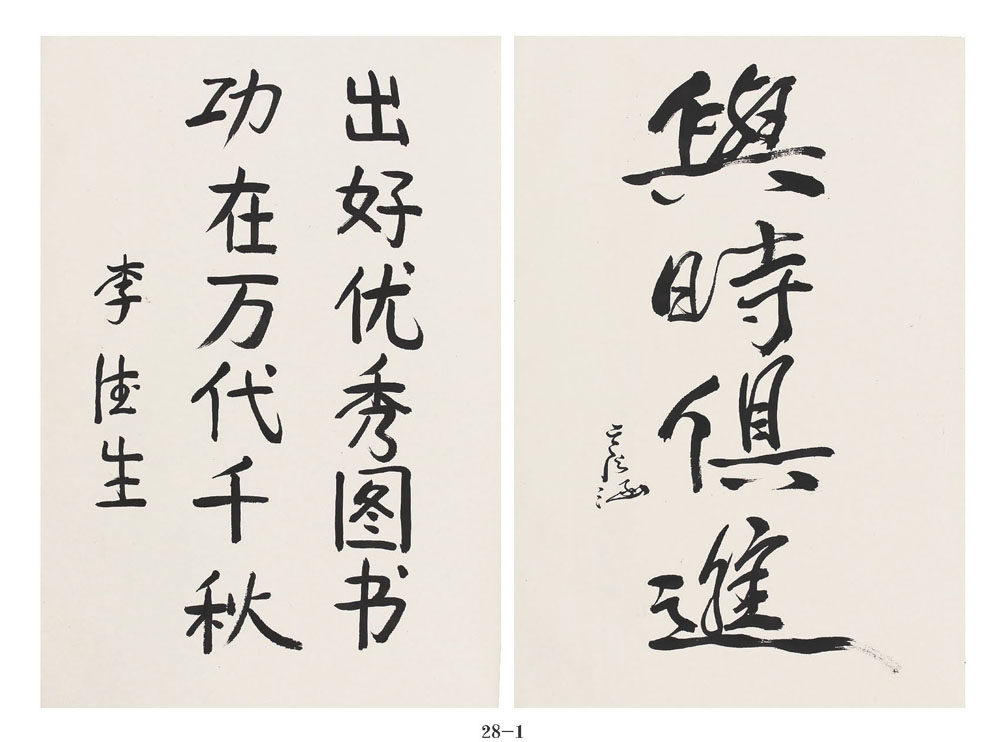 與時俱進
出好优秀图书
功在万代千秋
李德生
28-1